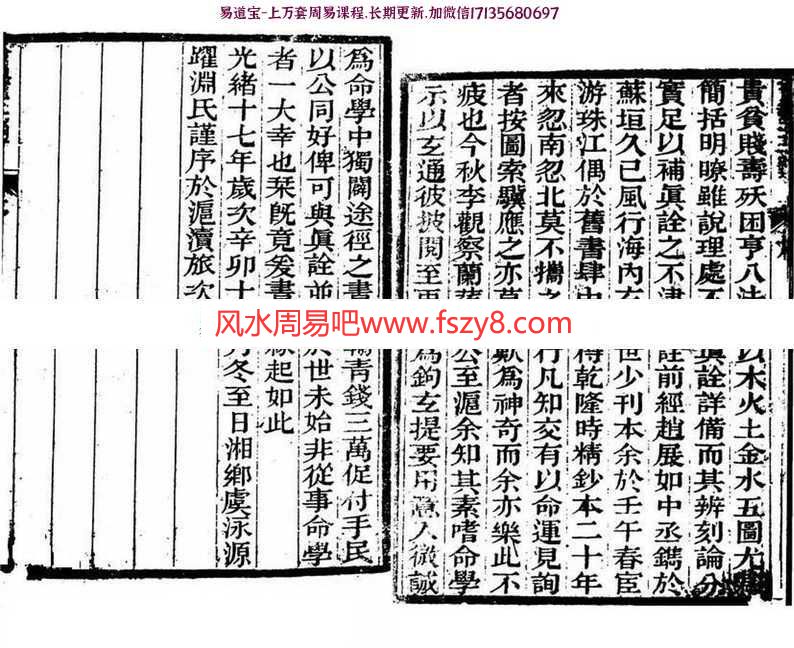 易道宝-上万套周易课程.长期更新.加微信17135680697
貴貧賤壽殀困亨八法 以木火土金水五圖尤
簡括明瞭雖說理處不 眞詮詳備而其辨刻論分
實足以補眞詮之不 詮前經趙展如中丞鐫於
蘇垣久已風行海內 世少刊本余於壬午春宦
游珠江偶於舊書肆中 得乾隆時精鈔本二十年
來忽南忽北莫不攜之 行凡知交有以命運見詢
者按圖索驥應之亦 歎爲神奇而余亦樂此不
疲也今秋李觀察蘭 公至滬余知其素嗜命學
示以玄通彼披閱至再 爲鉤玄提要用意入微誠
爲命學中獨闢途徑之書 青錢三萬促付手民
以公同好俾可與眞詮並 於世未始非從事命學
者一大幸也栞旣竟爰書 緣起如此
光緒十七年歲次辛卯十 月冬至日湘鄉虞泳源
躍淵氏謹序於滬瀆旅次
风水周易吧www.fszy8.com